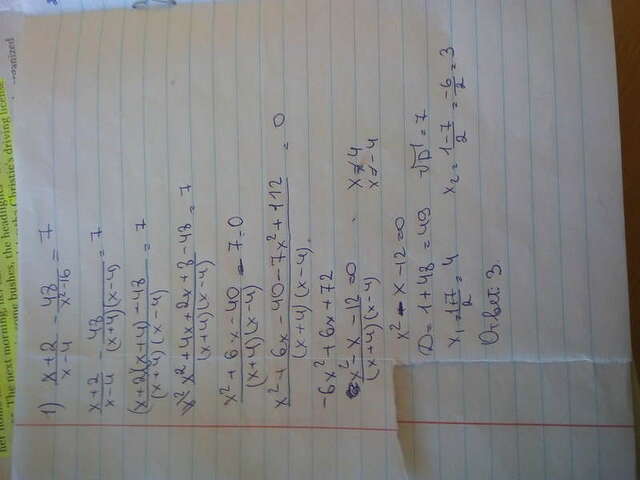 The next morning, her
some bushes, the headlights
the Christie's driving license
organized
1) x+2/x-4 - 48/x²-16 = 7
x+2/x-4 - 48/(x+4)(x-4) = 7
(x+2)(x+4)-48/(x+4)(x-4) = 7
x²+4x+2x+8-48/(x+4)(x-4) = 7
x²+6x-40/(x+4)(x-4) - 7=0
x²+6x-40-7x²+112/(x+4)(x-4) = 0
-6x²+6x+72
x²-x-12=0/(x+4)(x-4)
x≠4
x≠-4
x²-x-12=0
D=1+48=49 √D=7
x₁=1+7/2=4 x₂=1-7/2=-6/2=3
Ответ: 3.